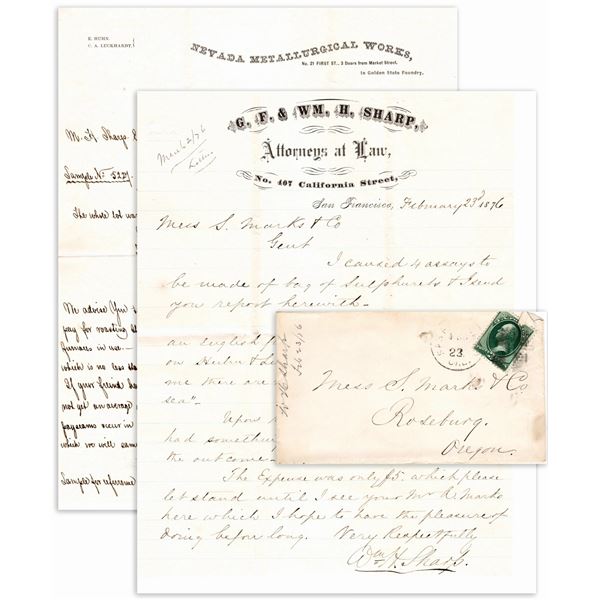 E. HUHN.
C. A. LUCKHARDT.
NEVADA METALLURGICAL WORKS,
No. 21 FIRST ST., 3 Doors from Market Street.
In Golden State Foundry.
M. H Sharp
Sample No 5227.
The whole lot wa
We advise You
pay for roasting
furnaces in use —
which is no less
If your friend ha
not get an average
paysean
which we will sam
Sample for reference
G. F. & WM. H. SHARP,
Attorneys at Law,
No. 407 California Street,
San Francisco, February 23d 1876
Mess S. Marks & Co
Gent
I caused 4 assays to
be made of bag of Sulphurets & I send
you report herewith —
an english
on Huhn &
me there are
sea".
Upon
had somethin
the outcome
The Expense was only $5. which please
let stand until I see your Mr A. Marks
here which I hope to have the pleasure of
doing before long. Very Respectfully
Wm H. Sharp.
Wm H Sharp
Feb 23/76
23
Mess S. Marks & Co
Roseburg.
Oregon.